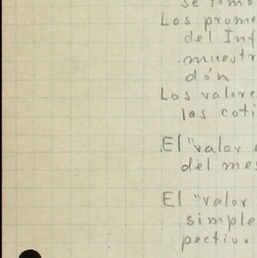 se tomo
Los prome
del Inf
muestr
dón
Los valore
las coti
El "valor
del mes
El "valor
simple
pectivo.